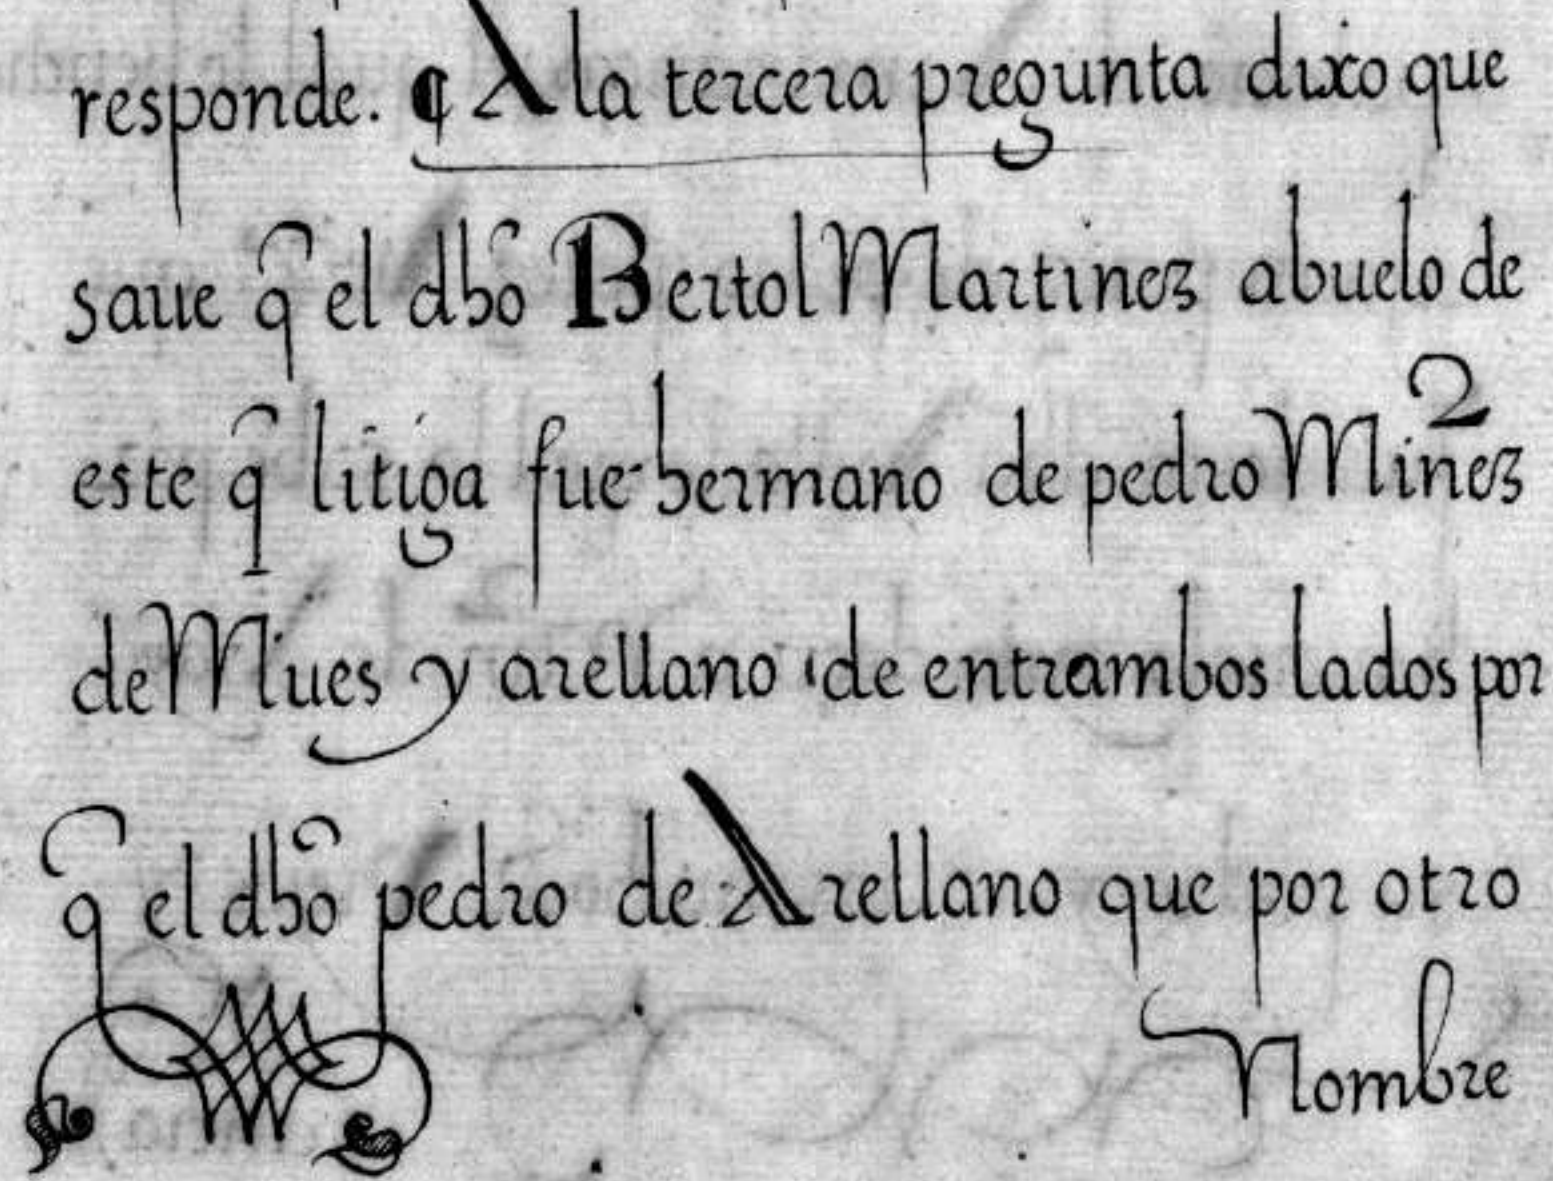 responde. ¶ A la tercera pregunta dixo que
saue q̃ el dhõ Bertol Martinez abuelo de
este q̃ litiga fue hermano de pedro Miñez
de Mues y arellano de entrambos lados por
q̃ el dhõ pedro de Arellano que por otro
Nombre